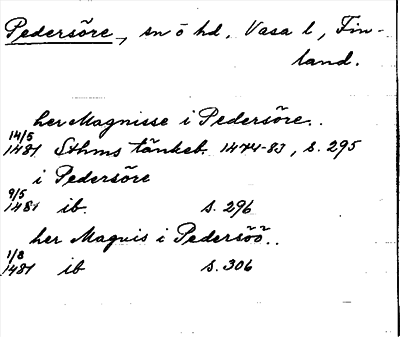 Pedersöre, sn o hd. Vasa l, Fin-
land.
her Magnisse i Pedersöre..
14/5
1481 Sthms tänkeb. 1474-83, s. 295
i Pedersöre
9/5
1481 ib. s. 296
her Magnis i Pedersöö..
1/8
1481 ib s. 306